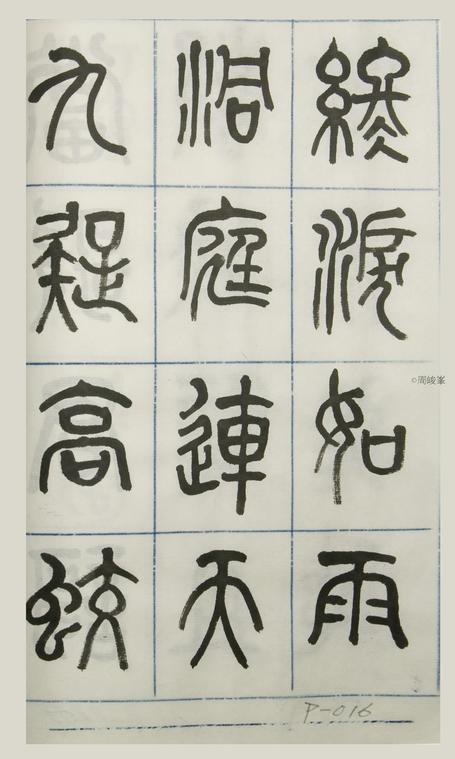 終淚如雨
洞庭連天
九疑高蛟
©周峻峯
P-016